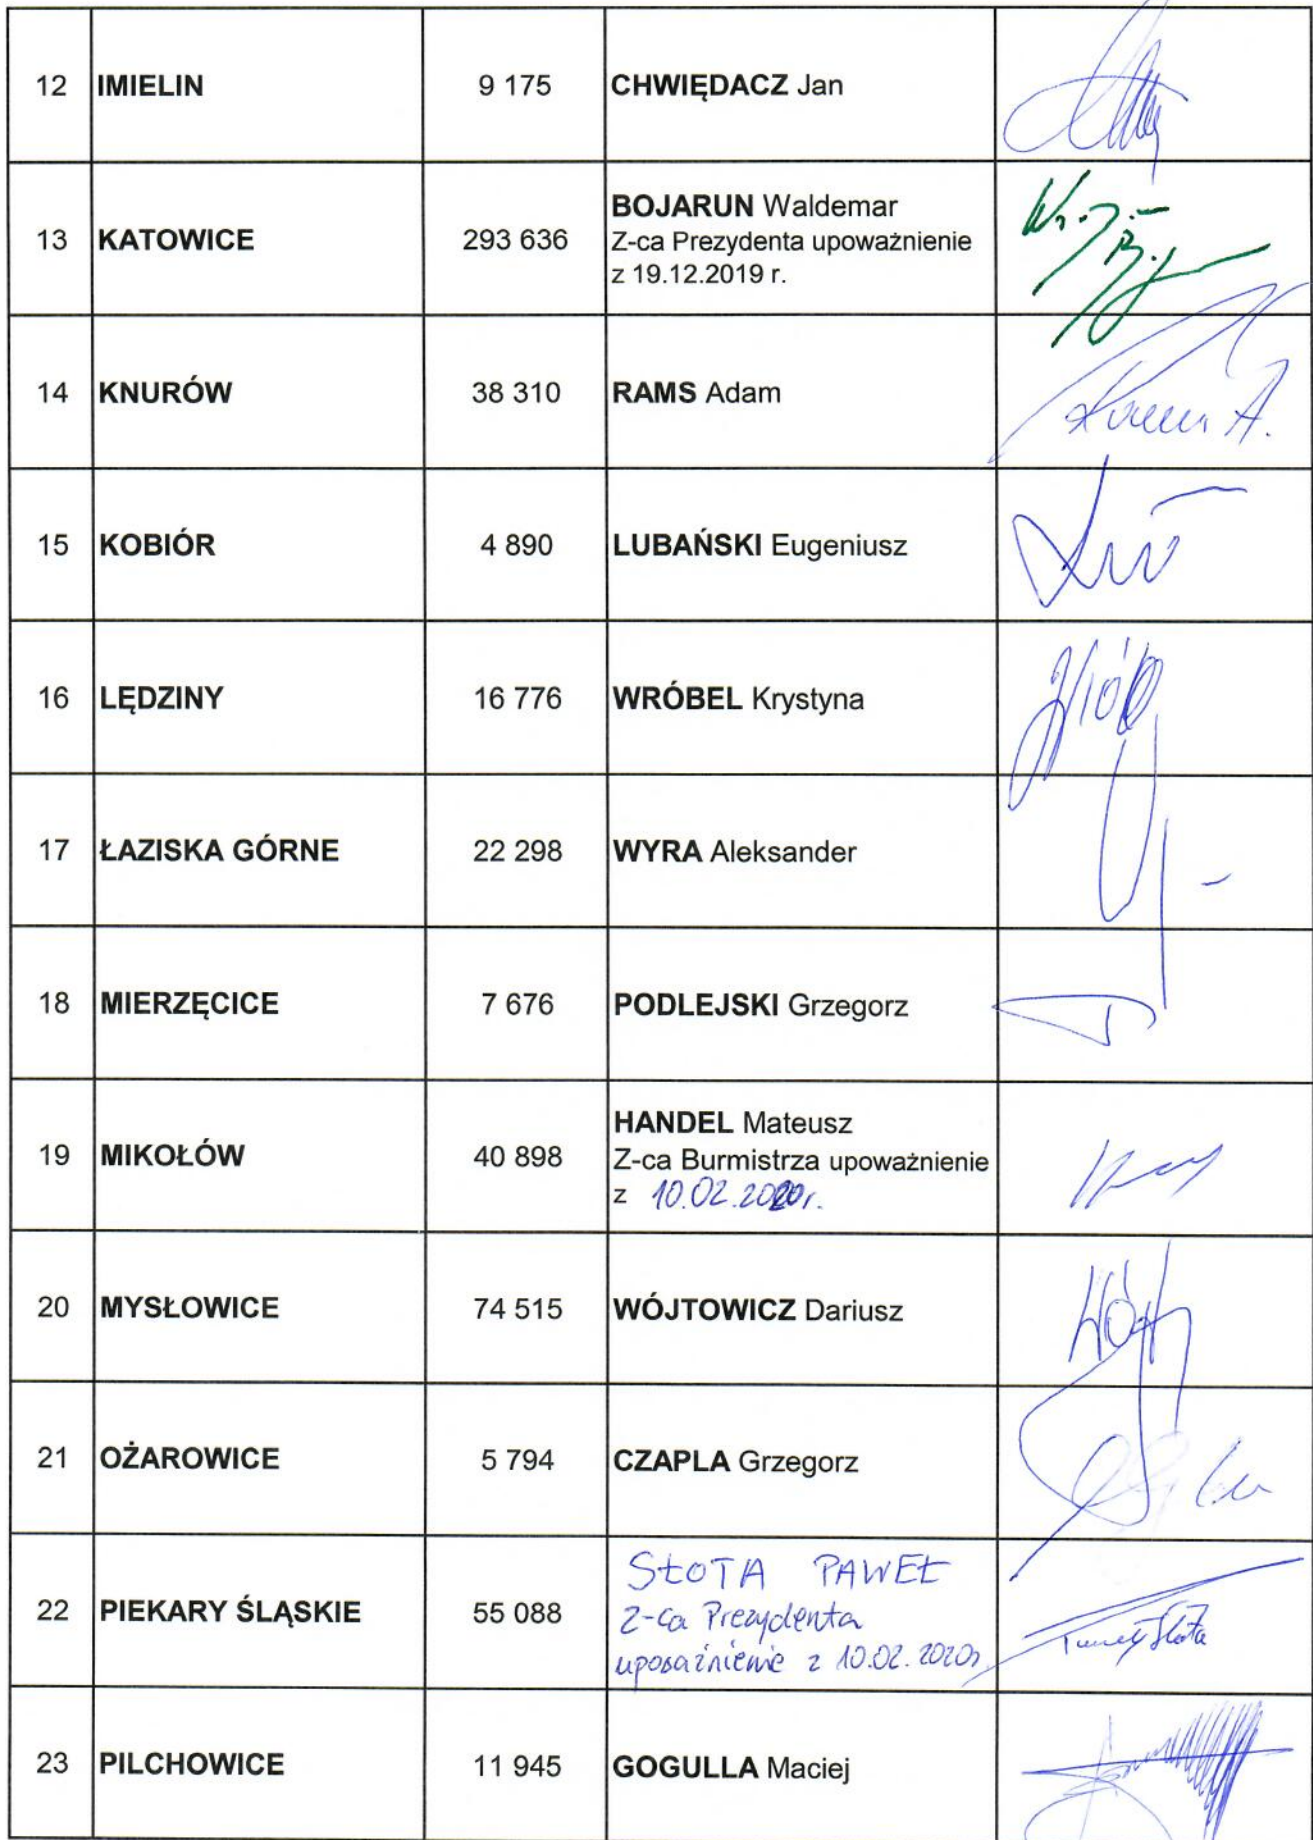 12 IMIELIN 9 175 CHWIĘDACZ Jan
13 KATOWICE 293 636 BOJARUN Waldemar
Z-ca Prezydenta upoważnienie
z 19.12.2019 r.
14 KNURÓW 38 310 RAMS Adam
15 KOBIÓR 4 890 LUBAŃSKI Eugeniusz
16 LĘDZINY 16 776 WRÓBEL Krystyna
17 ŁAZISKA GÓRNE 22 298 WYRA Aleksander
18 MIERZĘCICE 7 676 PODLEJSKI Grzegorz
19 MIKOŁÓW 40 898 HANDEL Mateusz
Z-ca Burmistrza upoważnienie
z 10.02.2020r.
20 MYSŁOWICE 74 515 WÓJTOWICZ Dariusz
21 OŻAROWICE 5 794 CZAPLA Grzegorz
22 PIEKARY ŚLĄSKIE 55 088 SŁOTA PAWEŁ
Z-ca Prezydenta
upoważnienie z 10.02.2020r.
23 PILCHOWICE 11 945 GOGULLA Maciej